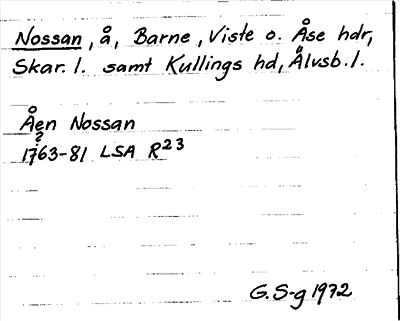 Nossan, å, Barne, Viste o. Åse hdr,
Skar. l. samt Kullings hd, Älvsb. l.
Åen Nossan
?
1763-81 LSA R23
G. S-g 1972